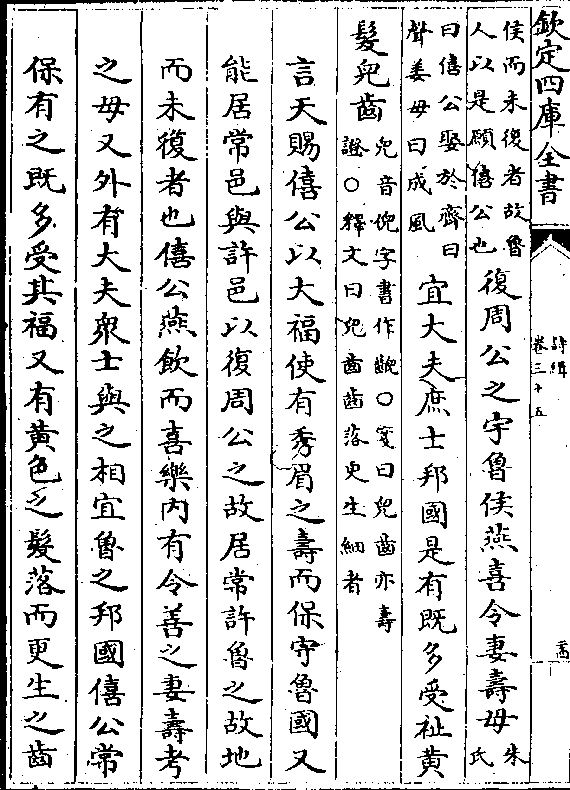 欽定四庫全書
詩緝
卷三十五
侯而未復者故魯
人以是願僖公也
復周公之宇魯侯燕喜令妻壽母
朱氏
曰僖公娶於齊曰
聲姜母曰成風
宜大夫庶士邦國是有既多受祉黄
髮兒齒
兒音倪字書作齯○箋曰兒齒亦壽
證○釋文曰兒齒齒落更生細者
言天賜僖公以大福使有秀眉之壽而保守魯國又
能居常邑與許邑以復周公之故居常許魯之故地
而未復者也僖公燕飲而喜樂内有令善之妻壽考
之母又外有大夫衆士與之相宜魯之邦國僖公常
保有之既多受其福又有黄色之髮落而更生之齒